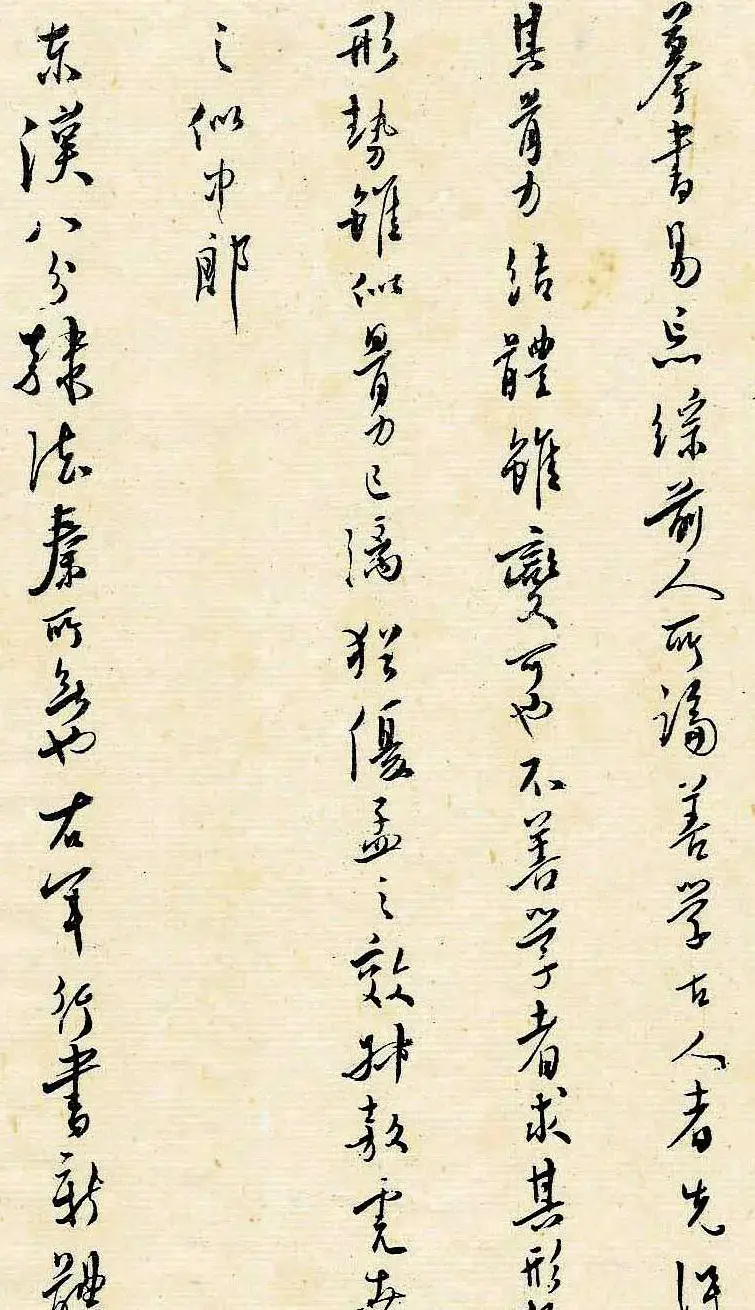 摹書易忘綜前人所論善學古人者先得
其骨力結體雖變可也不善學者求其形
形勢雖似骨力已漓猶優孟之效孫敖虎賁
之似中郎
東漢八分隸法秦所無也右軍行書新體